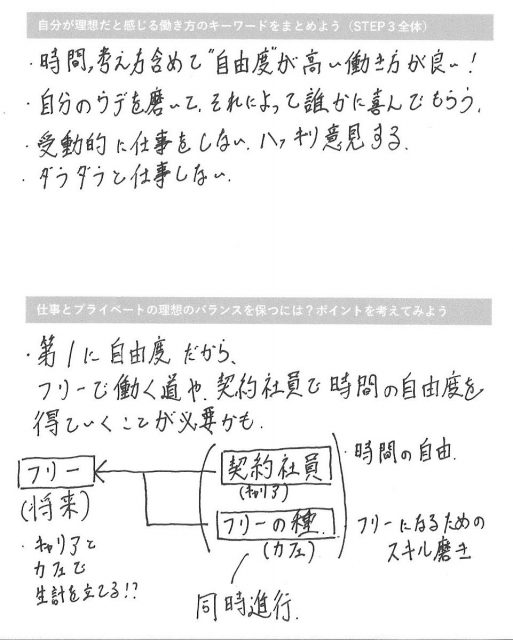 自分が理想だと感じる働き方のキーワードをまとめよう（STEP３全体）
・時間,考え方含めて"自由度"が高い働き方が良い！
・自分のウデを磨いて、それによって誰かに喜んでもらう。
・受動的に仕事をしない。ハッキリ意見する。
・ダラダラと仕事しない。
仕事とプライベートの理想のバランスを保つには？ポイントを考えてみよう
・第1に自由度だから、
フリーで働く道や、契約社員で時間の自由度を
得ていくことが必要かも。
フリー
(将来)
・キャリアと
カフェで
生計を立てる!?
契約社員
(キャリア)
フリーの種
(カフェ)
同時進行.
・時間の自由.
フリーになるための
スキル磨き